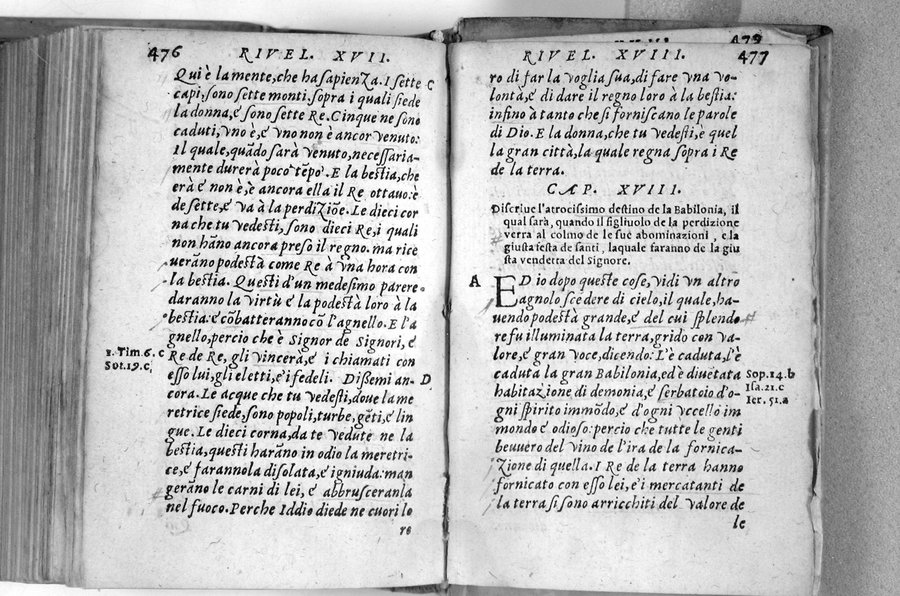 476 RIVEL. XVII.
Qui è la mente, che ha sapienza. I sette C
capi, sono sette monti. sopra i quali siede
la donna, e sono sette Re. Cinque ne sono
caduti, vno è, e vno non è ancor venuto:
Il quale, quãdo sarà venuto, necessaria-
mente durerà poco tẽpo. E la bestia, che
era e non è, è ancora ella il Re ottauo: è
de sette, e va à la perdiziõe. Le dieci cor
na che tu vedesti, sono dieci Re, i quali
non hãno ancora preso il regno. ma rice
uerãno podestà come Re à vna hora con
la bestia. Questi d'un medesimo parere
daranno la virtù e la podestà loro à la
bestia. e cõbatteranno cõ l'agnello. E l'a
gnello, percio che è Signor de Signori, e
1. Tim. 6. c Re de Re, gli vincerà, e i chiamati con
Sot. 19. c, esso lui, gli eletti, e i fedeli. Dissemi an- D
cora. Le acque che tu vedesti, doue la me
retrice siede, sono popoli, turbe, gẽti, e lin
gue. Le dieci corna, da te vedute ne la
bestia, questi harãno in odio la meretri-
ce, e farannola disolata, e igniuda: man
gerãno le carni di lei, e abbrusceranla
nel fuoco. Perche Iddio diede ne cuori lo
re
479
RIVEL. XVIII. 477
ro di far la voglia sua, di fare vna vo-
lontà, e di dare il regno loro à la bestia:
infino à tanto che si forniscano le parole
di Dio. E la donna, che tu vedesti, è quel
la gran città, la quale regna sopra i Re
de la terra.
CAP. XVIII.
Discriue l'atrocissimo destino de la Babilonia, il
qual sarà, quando il figliuolo de la perdizione
verra al colmo de le sue abominazioni, e la
giusta festa de santi, laquale faranno de la giu
sta vendetta del Signore.
A ED io dopo queste cose, vidi vn altro
agnolo scẽdere di cielo, il quale, ha-
uendo podestà grande, e del cui splendo
re fu illuminata la terra, grido con va-
lore, e gran voce, dicendo: L'è caduta, l'è
caduta la gran Babilonia, ed'è diuẽtata Sop. 14. b
habitazione di demonia, e serbatoio d'o- Isa. 21. c
gni spirito immõdo, e d'ogni vccello im Ier. 51. a
mondo e odioso: percio che tutte le genti
beuuero del vino de l'ira de la fornica-
zione di quella. I Re de la terra hanno
fornicato con esso lei, e i mercatanti de
la terra si sono arricchiti del valore de
le